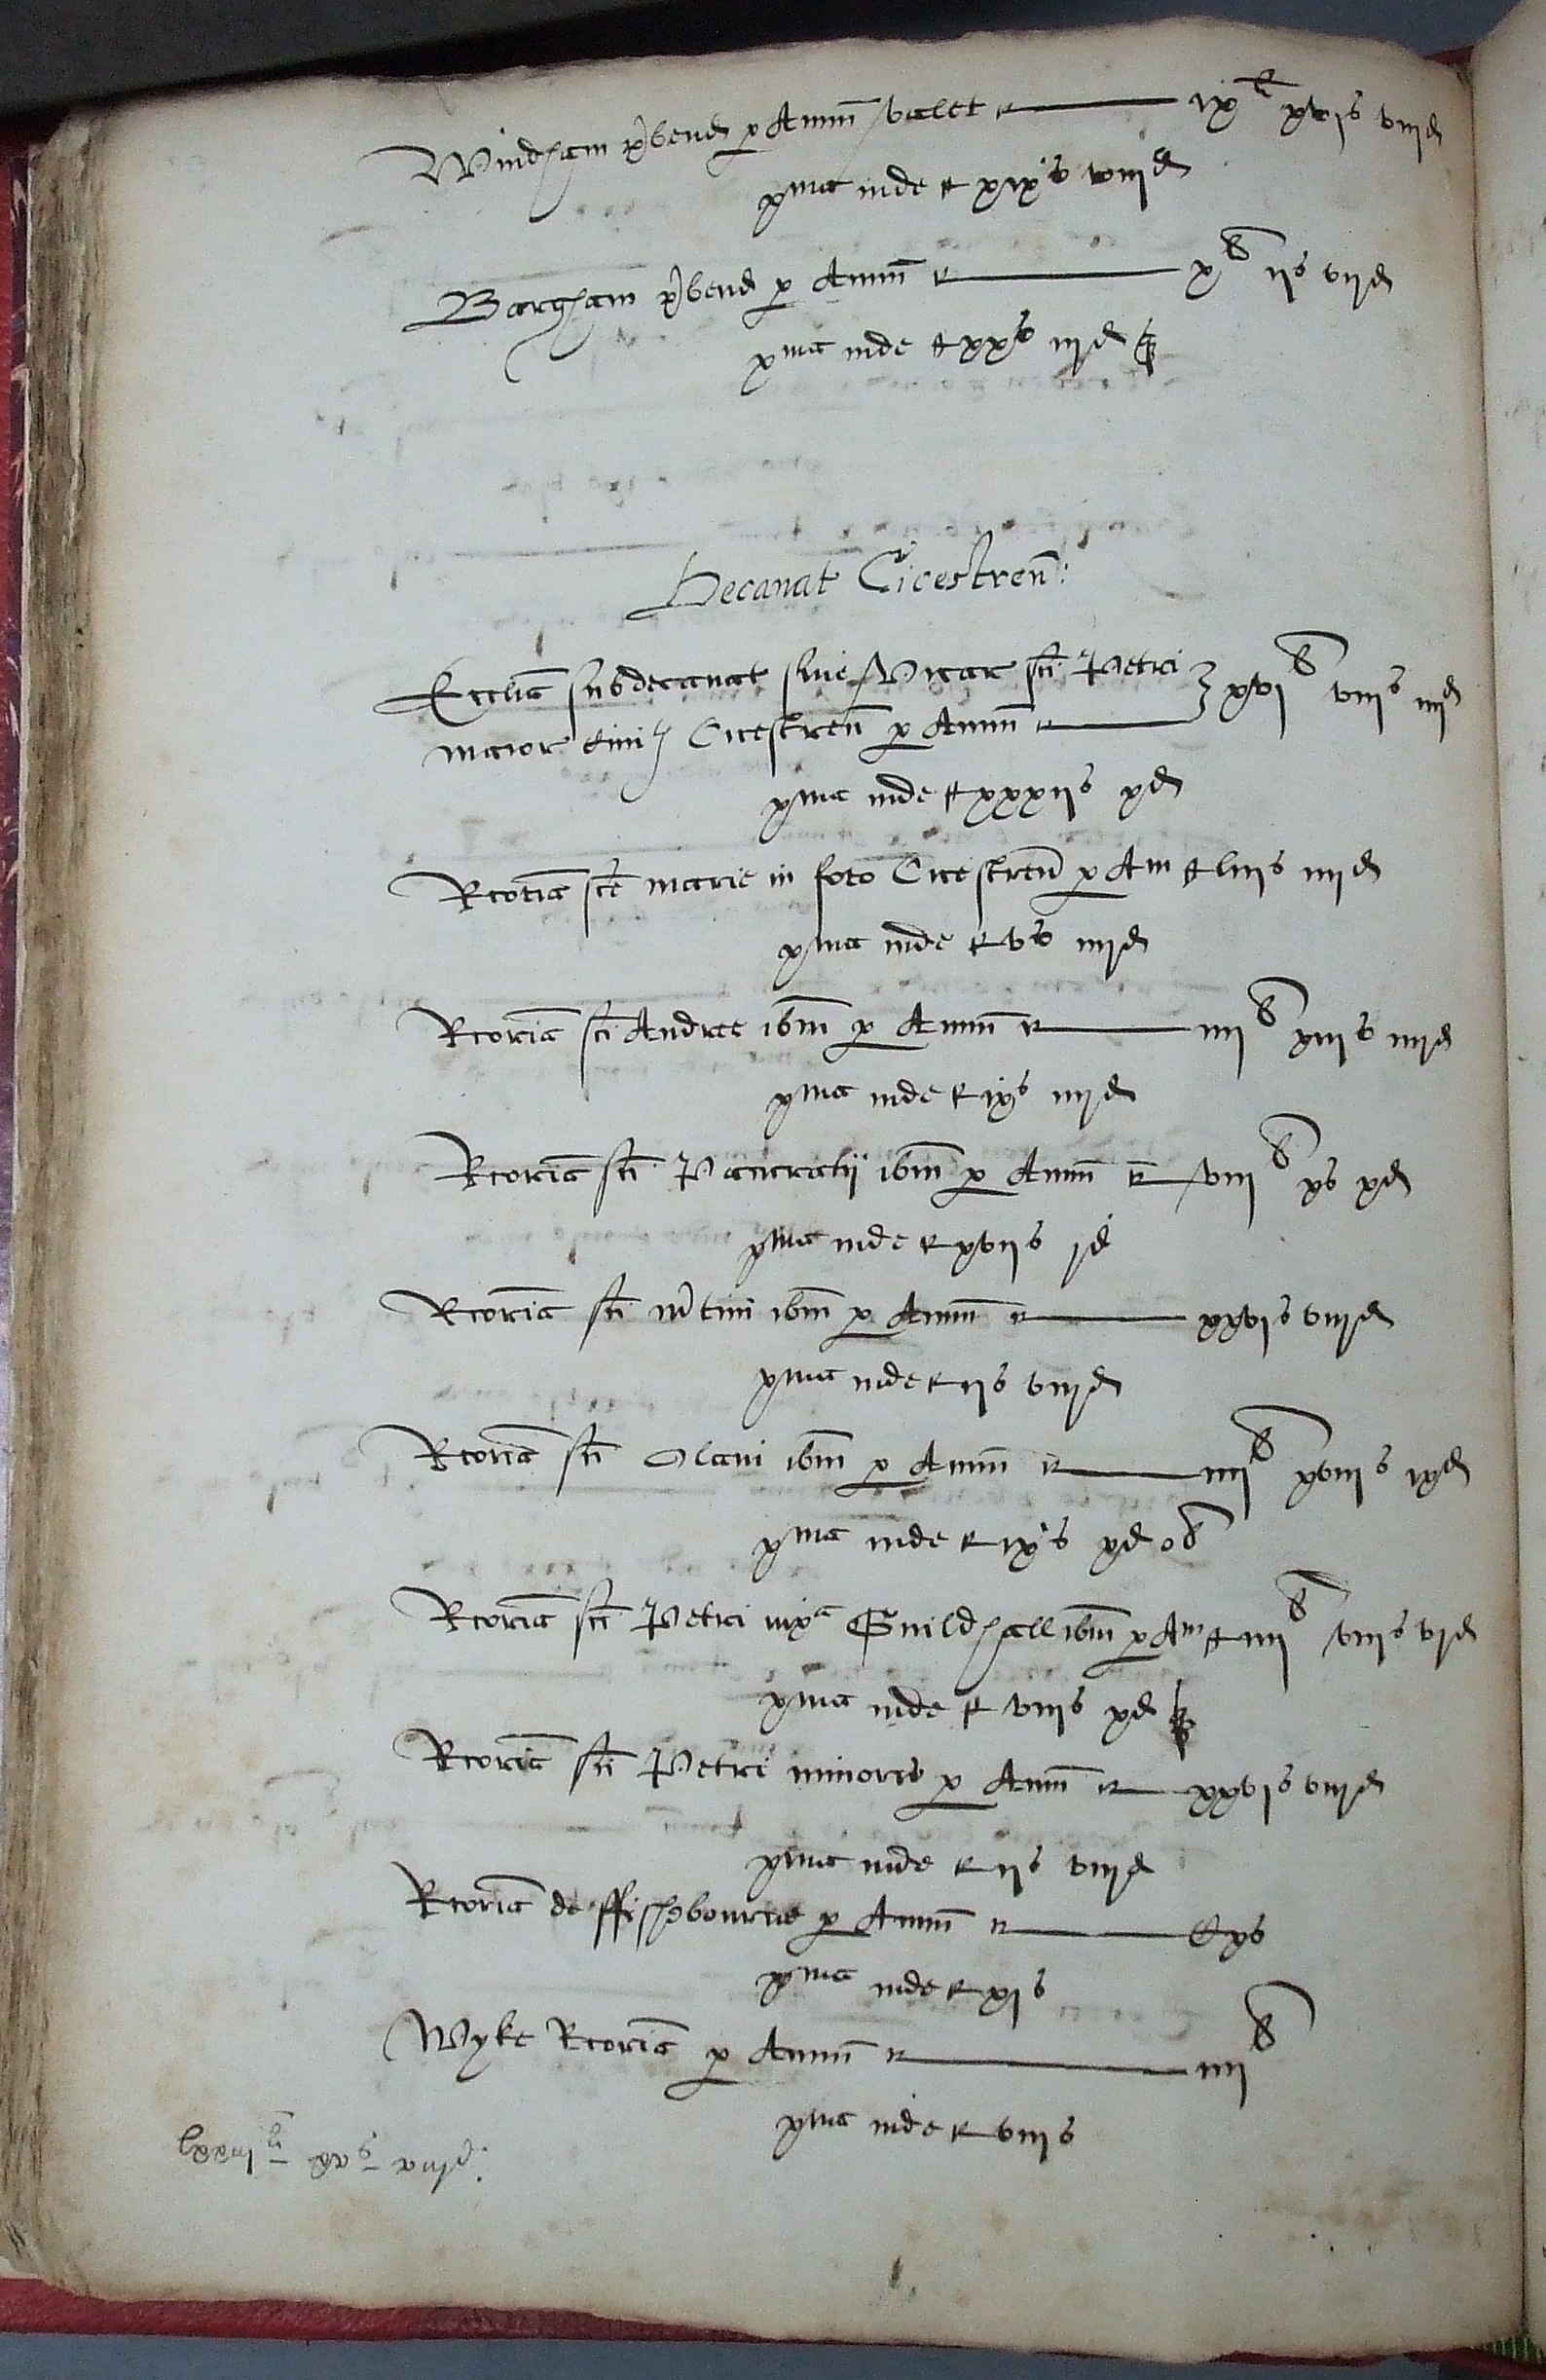 Windham p'bend p Annu valet r ix li xvis viijd
xma inde r xixs viijd
Bargham p'bend p Annu r x li ijs vijd
xma inde r xxs iijd
Decanat Cicestren:
Ecclia subdecanat siue Vicar sci Petri
maior Cicestren p Annu r xvi li viijs iiijd
xma inde r xxxijs xd
Rcoria sce marie in foro Cicestren p Am r liijs iiijd
xma inde r vs iiijd
Rcoria sci Andree ibm p Annu r iiij li xiijs iiijd
xma inde r ixs iiijd
Rcoria sci Pancratij ibm p Annu r viij li xs xd
xma inde r xvijs jd
Rcoria sci m'tini ibm p Annu r xxvjs viijd
xma inde r ijs viijd
Rcoria sci Olavi ibm p Annu r iiij li xviijs ixd
xma inde r ixs xd ob
Rcoria sci Petri iuxa Guildhall ibm p Am r iiij li viijs vjd
xma inde r viijs xd
Rcoria sci Petri minoris p Annu r xxvjs viijd
xma inde r ijs viijd
Rcoria de ffishbourne p Annu r Cxs
xma inde r xjs
Wyke Rcoria p Annu r iiij li
xma inde r viijs